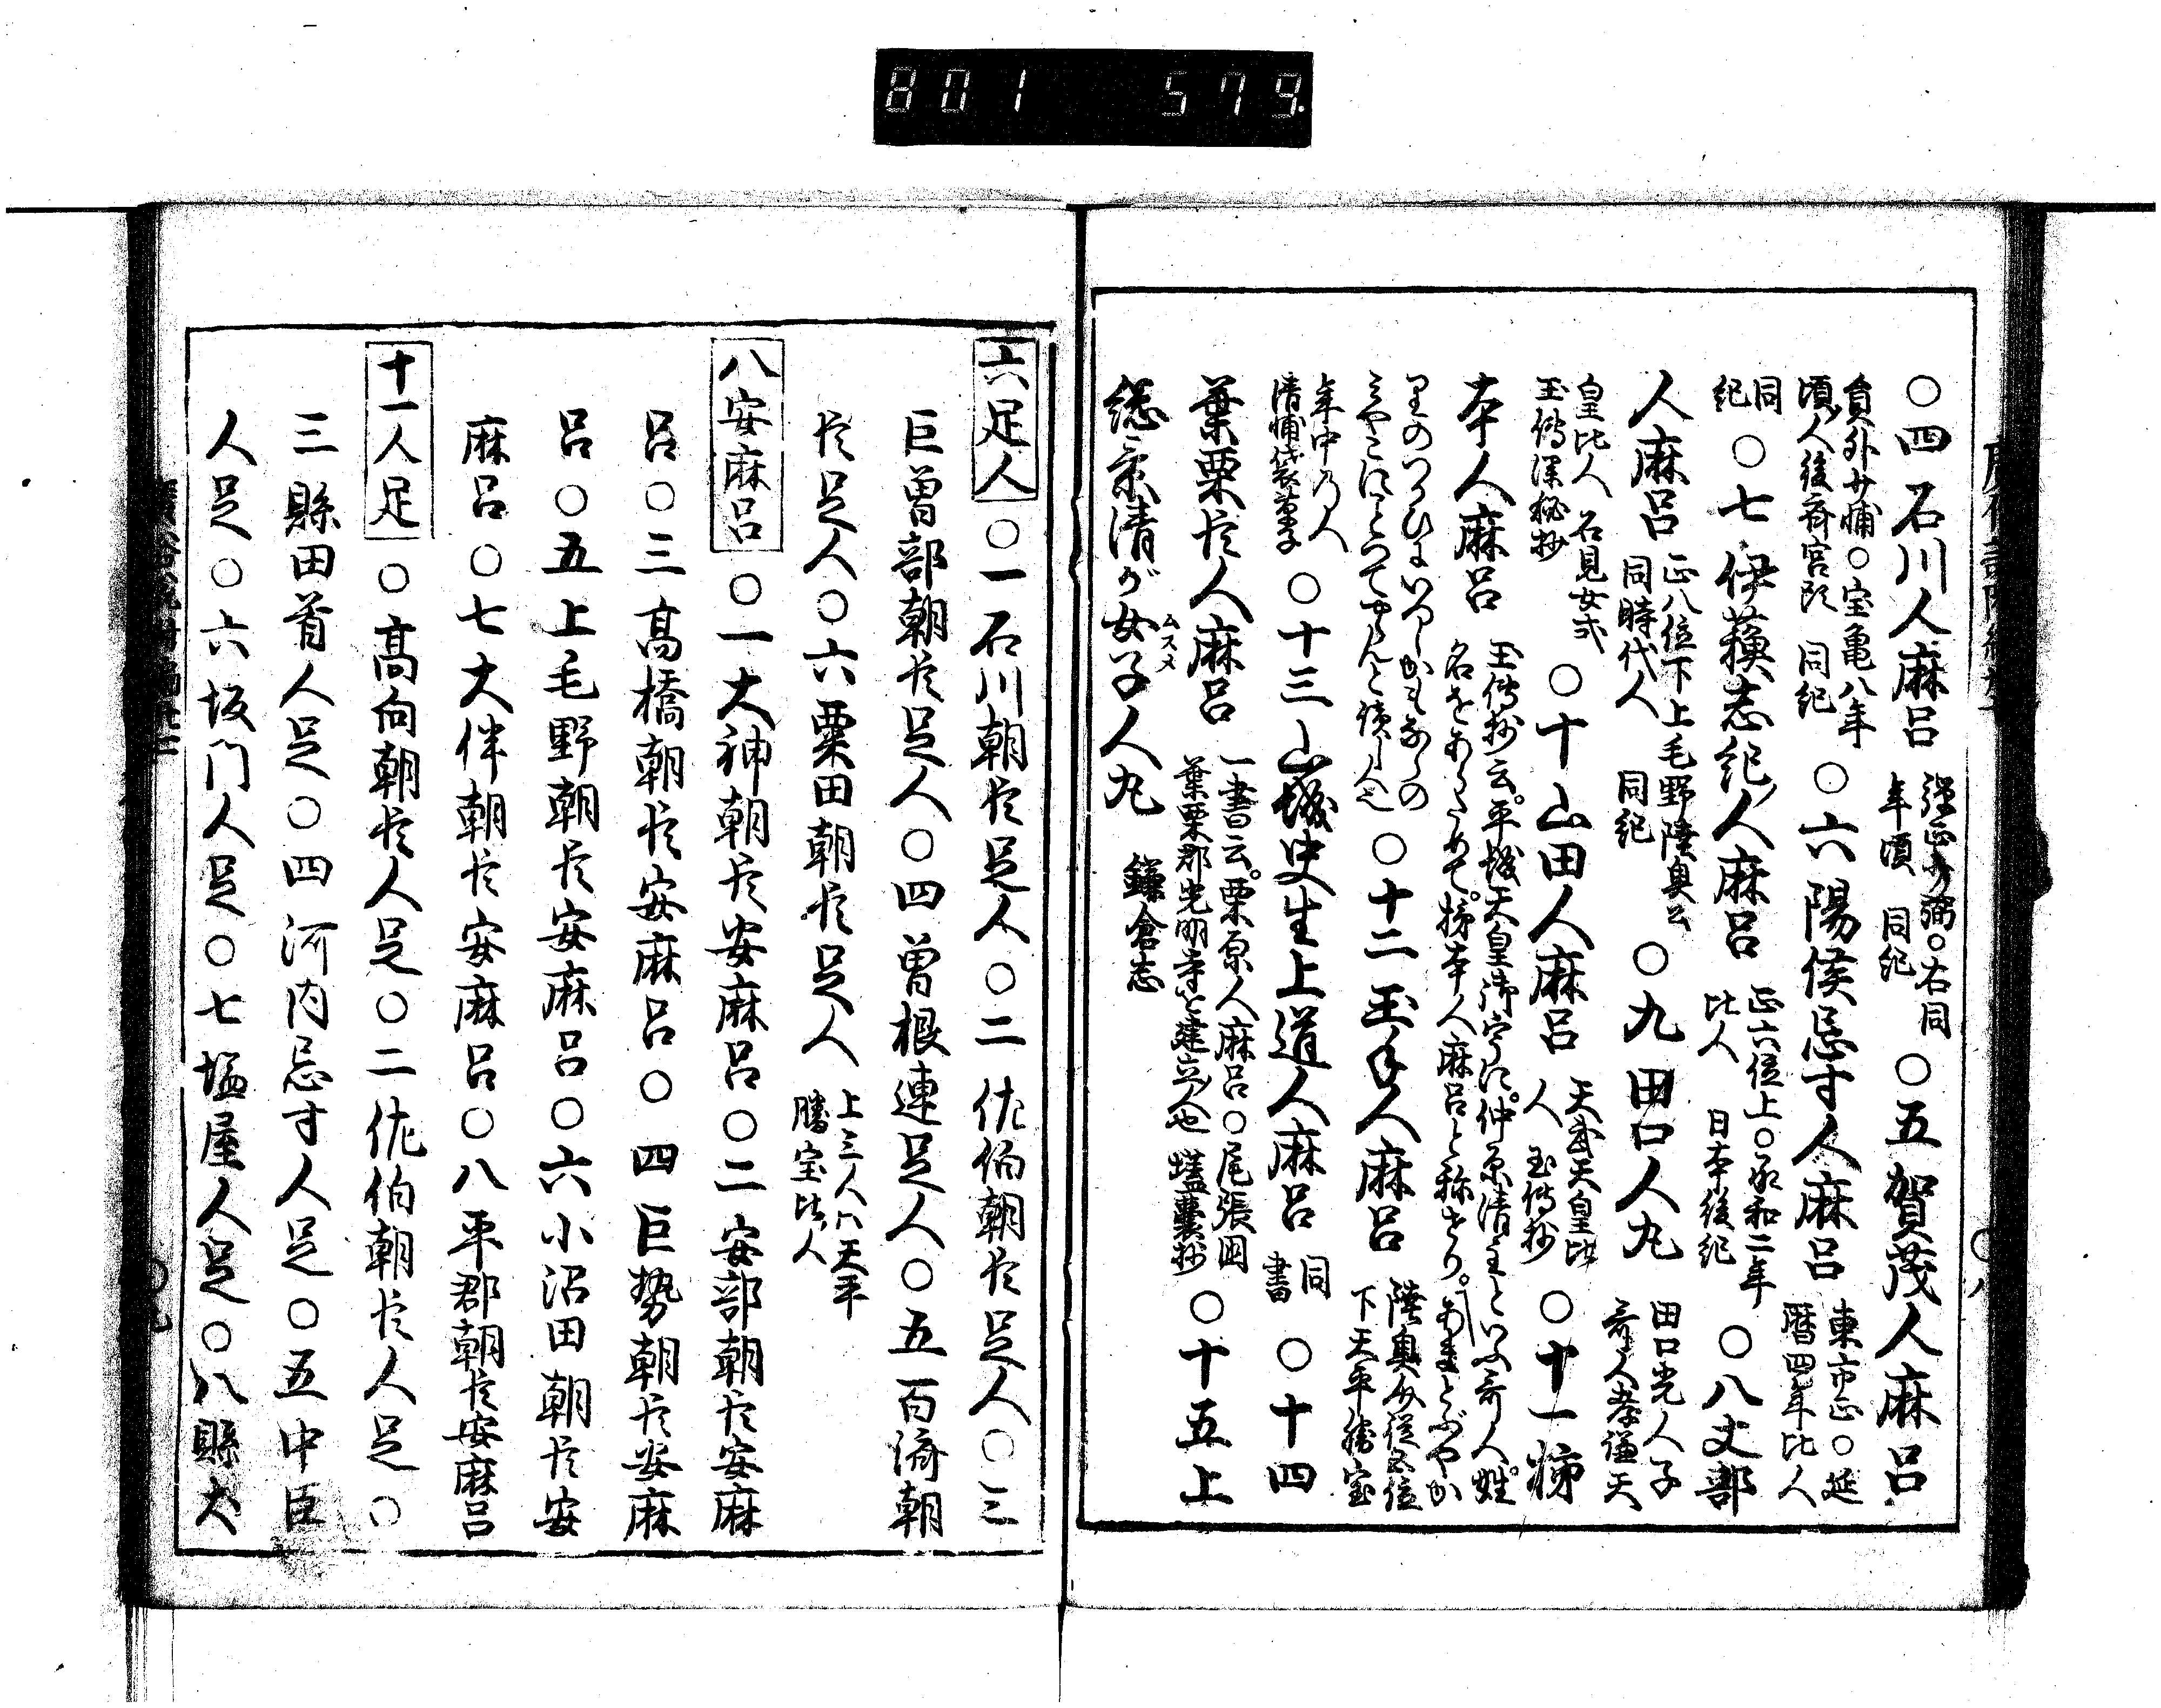 801 579.
○四 石川人麻呂 弾正少弼○右同年頃 同紀 ○五 賀茂人麻呂
員外少輔○宝亀八年頃人後斉宮頭 同紀 ○六 陽侯忌寸人麻呂 東市正○延暦四年比人
同紀 ○七 伊蘓志紀人麻呂 正六位上○承和二年比人 日本後紀 ○八丈部
人麻呂 正八位下上毛野陸奥公同時代人 同紀 ○九 田口人丸 田口光人子哥人孝謙天
皇比人 石見女式玉傳深秘抄 ○十 山田人麻呂 天武天皇比人 玉傳抄 ○十一 柿
本人麻呂 玉傳抄云。平城天皇御宇に。仲原清主といふ哥人。姓名をあらためて。柿本人麻呂と称せり。あまとぶやか
りのつかひにいつしかもならのみやこにことつてやらんと読し人也 ○十二 玉手人麻呂 陸奥介従五位下天平勝宝
年中乃人清輔袋草子 ○十三 山城史生上道人麻呂 同書 ○十四
葉栗臣人麻呂 一書云。栗原人麻呂○尾張国葉栗郡光明寺を建立人也 壒囊抄 ○十五 上
総景清が女子人丸 鎌倉志
ムスメ
○八
六足人 ○一石川朝臣足人○二 佐伯朝臣足人○三
巨曽部朝臣足人○四 曽根連足人○五 百済朝
臣足人○六 粟田朝臣足人 上三人ハ天平勝宝比人
八安麻呂 ○一大神朝臣安麻呂○二 安部朝臣安麻
呂○三 高橋朝臣安麻呂○四 巨勢朝臣安麻
呂○五 上毛野朝臣安麻呂○六 小沼田朝臣安
麻呂○七 大伴朝臣安麻呂○八 平郡朝臣安麻呂
十一人足 ○高向朝臣人足○二 佐伯朝臣人足○
三 縣田首人足○四 河内忌寸人足○五 中臣
人足○六 坂門人足○七 塩屋人足○八 縣犬
○九